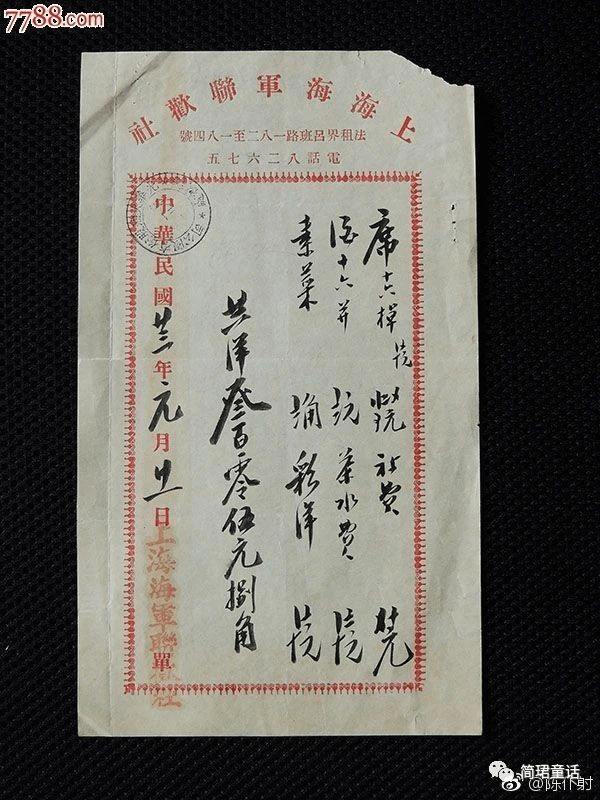 7788.com
在线
上海海軍聯歡社
法租界呂班路一八二至一八四號
電話八二六七五
席十六棹 社費
酒十六并 茶水費
素菜 彩洋
共洋叁百零伍元捌角
中華民國廿三年元月廿一日 單
上海海軍聯歡社
简珺童话
@陈仆射